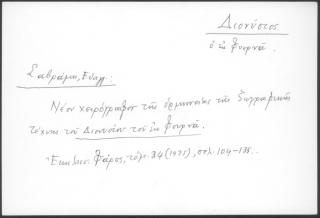 Διονύσιος
ὁ ἐκ Φουρνᾶ.
Σαβράμη, Εὐαγγ.:
Νέον χειρόγραφον τῆς ἑρμηνείας τῆς ζωγραφικῆς
τέχνης τοῦ Διονυσίου τοῦ ἐκ Φουρνᾶ.
Ἐκκλησ. Φάρος, τόμ. 34 (1935), σελ. 104-135.